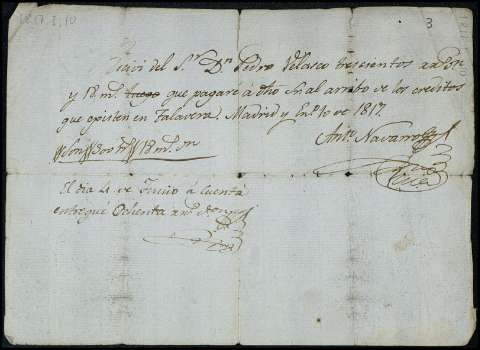 3
Recivi del S.r D.n Pedro Velasco trescientos
y 18 m.s luego que pagaré a dho S.or al arribo de los creditos
que existen en Talavera. Madrid y En.o 10 de 1817.
Ant.o Navarro
Son 300 r.s 18 m.s vn
El dia 21 de Junio á Cuenta
entregué Ochenta